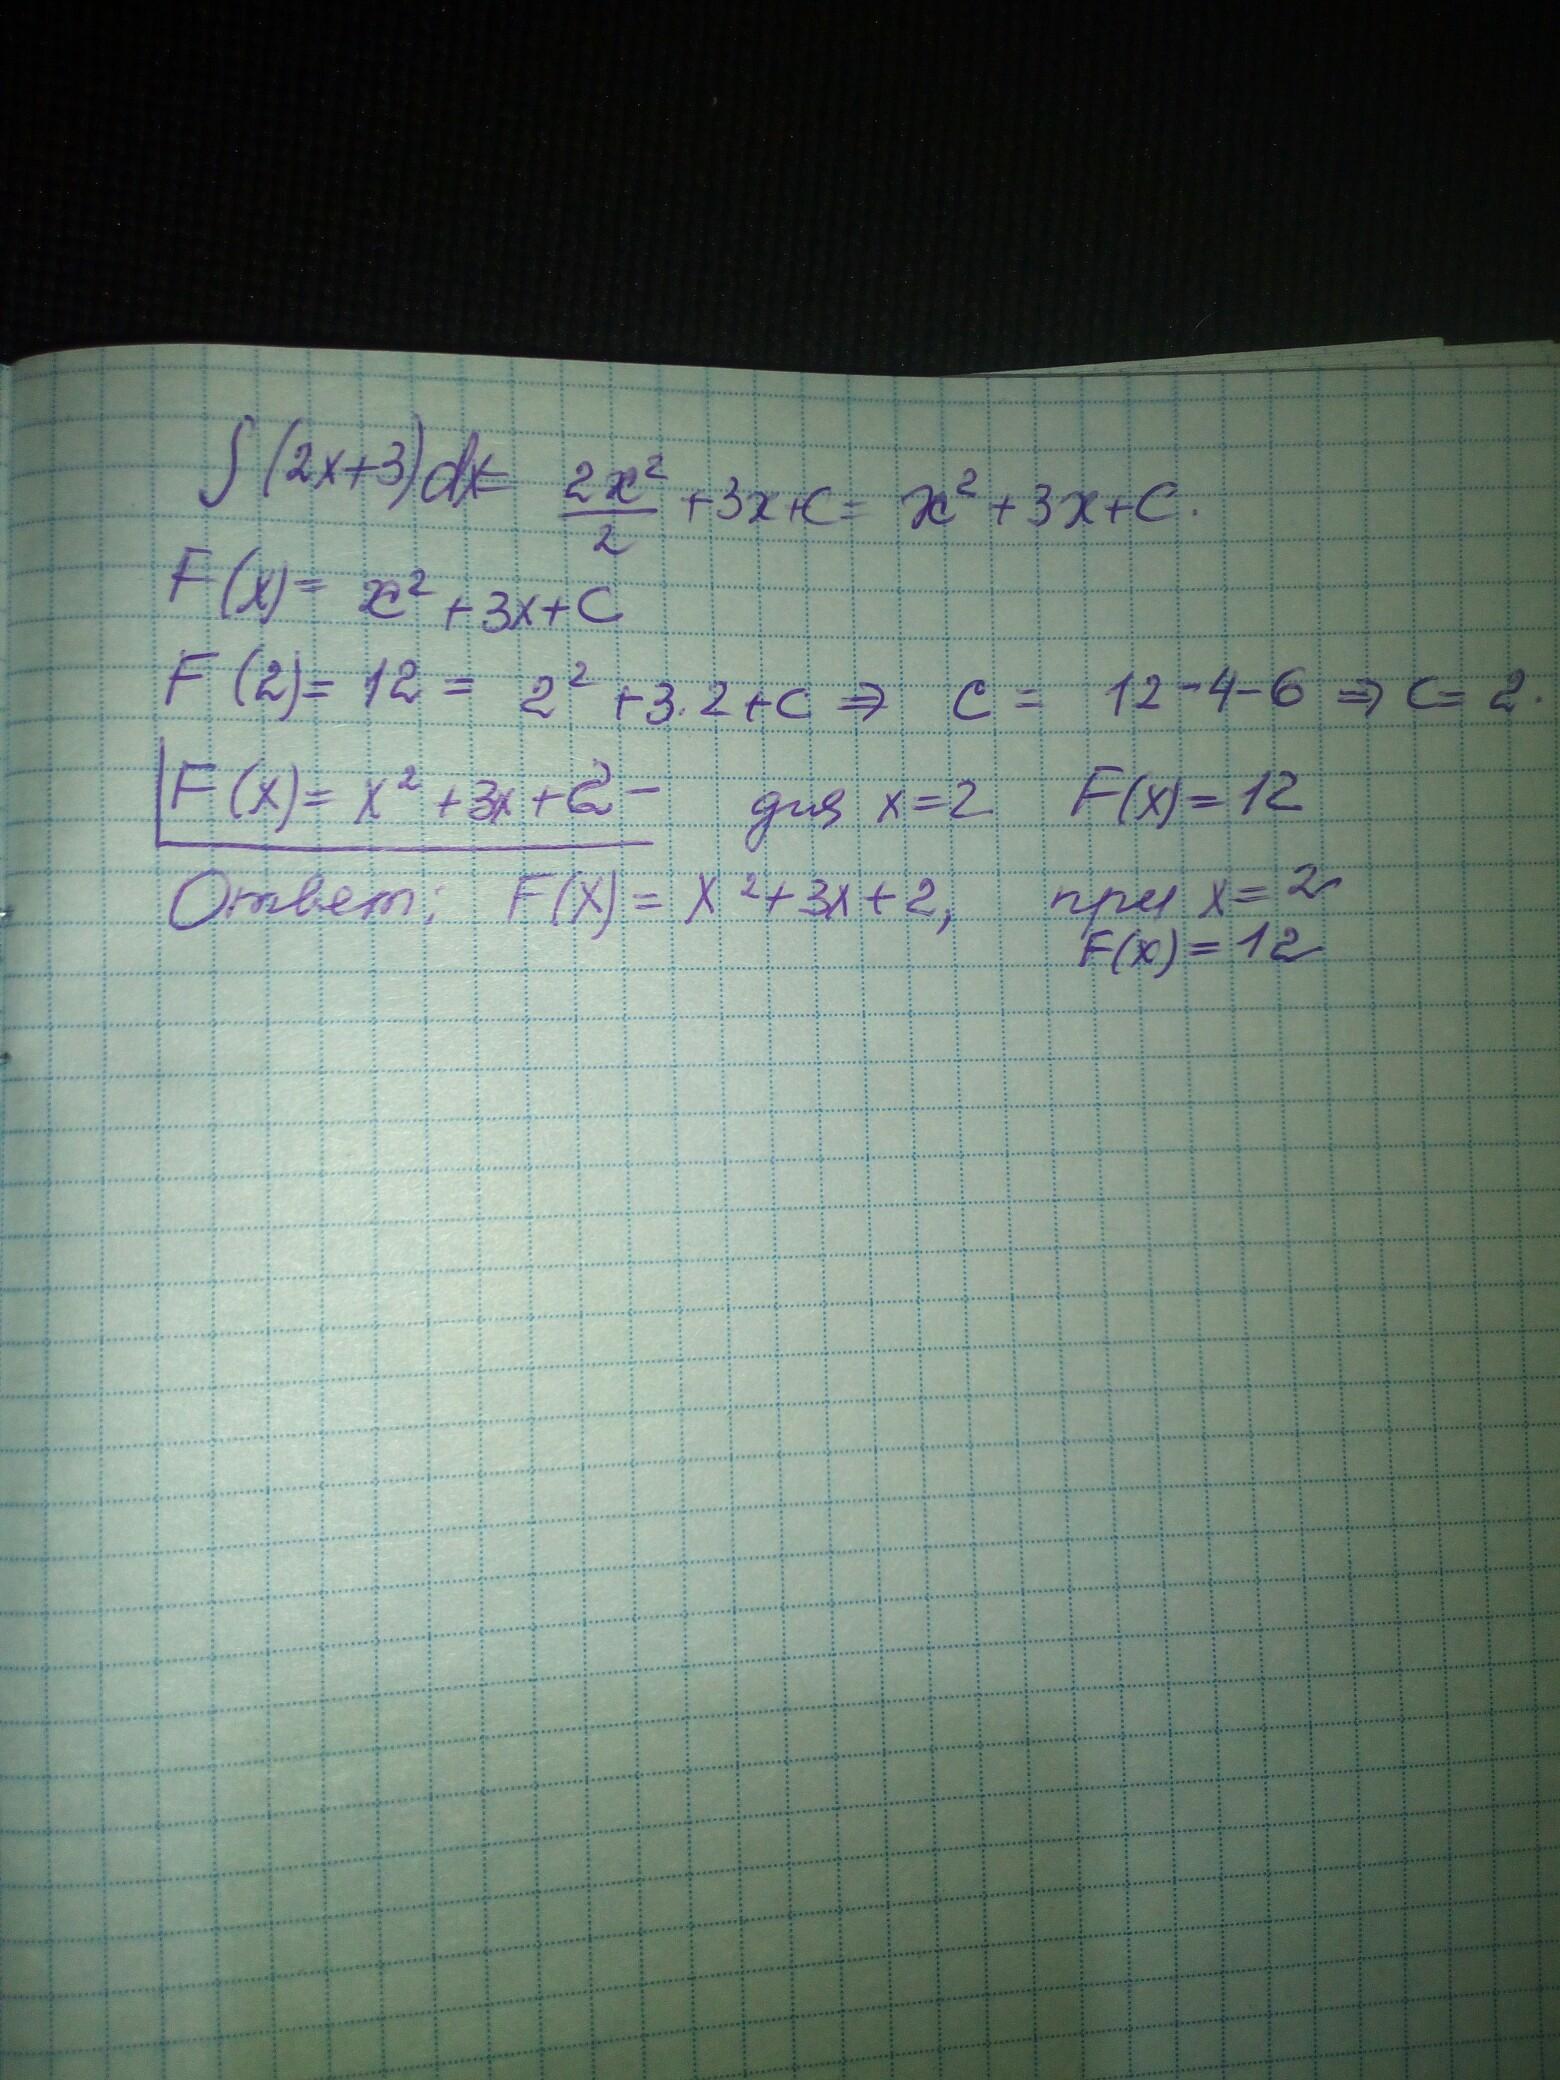 ∫(2x+3)dx= 2x²/2 +3x+C= x²+3x+C.
F(x)= x²+3x+C
F(2)= 12 = 2²+3·2+C ⇒ C = 12-4-6 ⇒ C= 2.
F(x)= x²+3x+2 - для x=2 F(x)=12
Ответ: F(x)= x²+3x+2, при x=2
F(x)=12